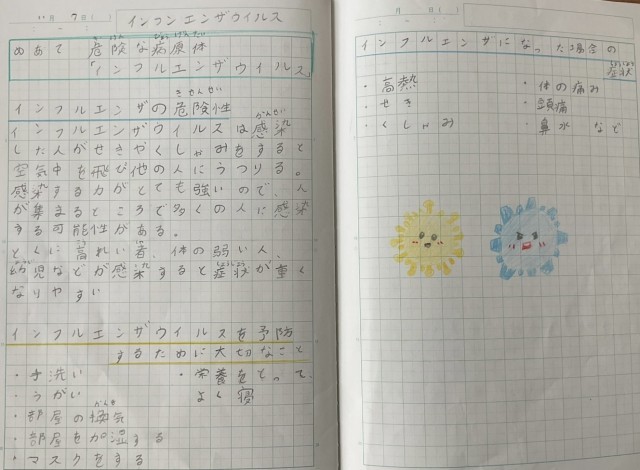 11月 7日( )
インフンエンザウイルス
めあて 危険な病原体
「インフルエンザウイルス」
インフルエンザの危険性
インフルエンザウイルスは感染
した人がせきやくしゃみをすると
空気中を飛び他の人にうつりる。
感染する力がとても強いので、人
が集まるところで多くの人に感染
する可能性がある。
とくに高れい者、体の弱い人、
幼児などが感染すると症状が重く
なりやすい
インフルエンザウイルスを予防
するために大切なこと
・手洗い
・うがい
・部屋の換気
・部屋をか湿する
・マスクをする
・栄養をとって、
よく寝
月 日( )
インフルエンザになった場合の
症状
・高熱
・せき
・くしゃみ
・体の痛み
・頭痛
・鼻水など